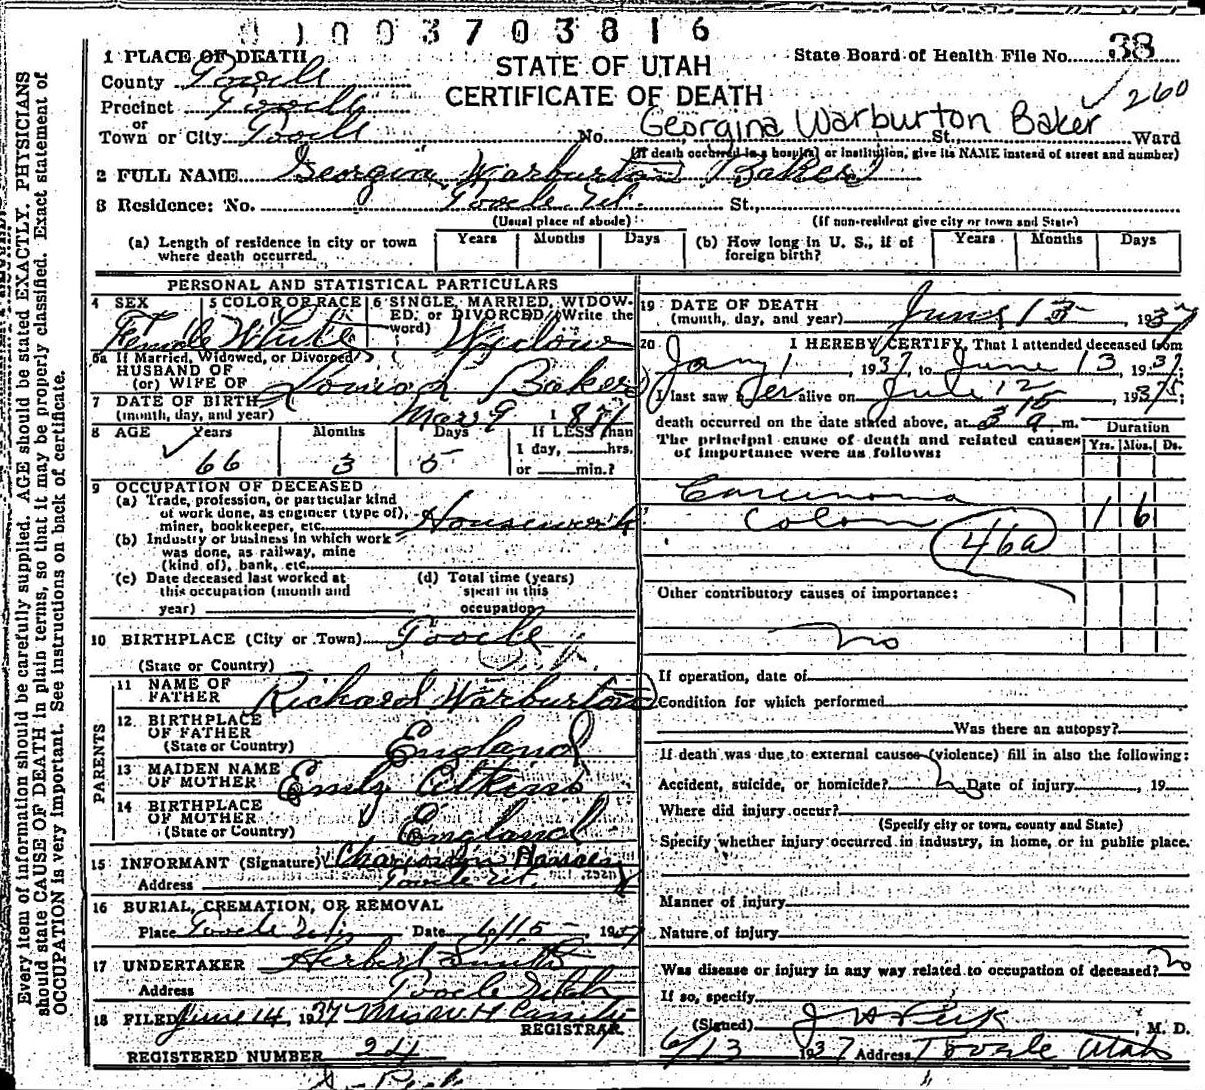 1003703816
1 PLACE OF DEATH
STATE OF UTAH
CERTIFICATE OF DEATH
State Board of Health File No. 38
260
County Tooele
Precinct Tooele
or
Town or City Tooele No. St., Ward
Georgina Warburton Baker
(If death occurred in a hospital or institution, give its NAME instead of street and number)
2 FULL NAME Georgina Warburton Baker
3 Residence: No. Tooele Ut. St.,
(Usual place of abode) (If non-resident give city or town and State)
(a) Length of residence in city or town where death occurred. Years Months Days
(b) How long in U. S., if of foreign birth? Years Months Days
PERSONAL AND STATISTICAL PARTICULARS
4 SEX Female
5 COLOR OR RACE White
6 SINGLE, MARRIED, WIDOWED, or DIVORCED (Write the word) Widow
6a If Married, Widowed, or Divorced
HUSBAND OF
(or) WIFE OF Baker
7 DATE OF BIRTH
(month, day, and year) Mar 9 1871
8 AGE Years Months Days If LESS than
66 3 5 1 day, hrs.
or min.?
9 OCCUPATION OF DECEASED
(a) Trade, profession, or particular kind
of work done, as engineer (type of),
miner, bookkeeper, etc. Housework
(b) Industry or business in which work
was done, as railway, mine
(kind of), bank, etc.
(c) Date deceased last worked at
this occupation (month and
year)
(d) Total time (years)
spent in this
occupation
10 BIRTHPLACE (City or Town) Tooele
(State or Country)
PARENTS
11 NAME OF FATHER Richard Warburton
12 BIRTHPLACE OF FATHER
(State or Country) England
13 MAIDEN NAME OF MOTHER Emily Atkins
14 BIRTHPLACE OF MOTHER
(State or Country) England
15 INFORMANT (Signature) Hansen
Address Tooele Ut.
16 BURIAL, CREMATION, OR REMOVAL
Place Tooele Date 6/15 1937
17 UNDERTAKER Herbert Smith
Address Tooele Utah
18 FILED June 14, 1937
REGISTRAR.
REGISTERED NUMBER 24
19 DATE OF DEATH
(month, day, and year) June 13 1937
20 I HEREBY CERTIFY, That I attended deceased from
Jany 1, 1937, to June 13, 1937;
I last saw her alive on 12, 1937;
death occurred on the date stated above, at 3 15 a m.
The principal cause of death and related causes
of importance were as follows:
Duration
Yrs. Mos. Ds.
Carcinoma
Colon 1 6
46a
Other contributory causes of importance:
no
If operation, date of
Condition for which performed
Was there an autopsy?
If death was due to external causes (violence) fill in also the following:
Accident, suicide, or homicide? Date of injury, 19
Where did injury occur?
(Specify city or town, county and State)
Specify whether injury occurred in industry, in home, or in public place.
Manner of injury
Nature of injury
Was disease or injury in any way related to occupation of deceased? no
If so, specify
(Signed) J H Peck, M. D.
6/13 1937 Address Tooele Utah
Every item of information should be carefully supplied. AGE should be stated EXACTLY. PHYSICIANS
should state CAUSE OF DEATH in plain terms, so that it may be properly classified. Exact statement of
OCCUPATION is very important. See instructions on back of certificate.